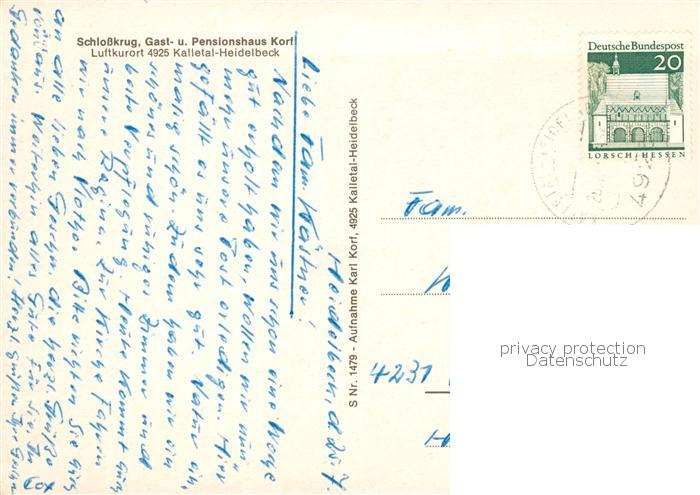 Schloßkrug, Gast- u. Pensionshaus Korf
Luftkurort 4925 Kalletal-Heidelbeck
Heidelbeck, d. 25. 7.
Liebe Fam. Kästner!
Nachdem wir uns schon eine Woche
gut erholt haben, wollen wir nun
mehr unsere Post erledigen. Hier
gefällt es uns sehr gut. Natur ein-
malig schön. Zudem haben wir ein
schönes und ruhiges Zimmer und
beste Verpflegung. Heute kommt
unsere Regina. Zur Kirche fahren
wir nach Vlotho. Bitte richten Sie
an alle lieben Geschw. die herzl. Grüße
von uns. Weiterhin alles Gute für Sie. In
Gedanken immer verbunden! Herzl. grüßen Ihre Geschw.
Cox
S Nr. 1479 - Aufnahme Karl Korf, 4925 Kalletal-Heidelbeck
Deutsche Bundespost
20
LORSCH/HESSEN
492
Fam.
4231
privacy protection
Datenschutz